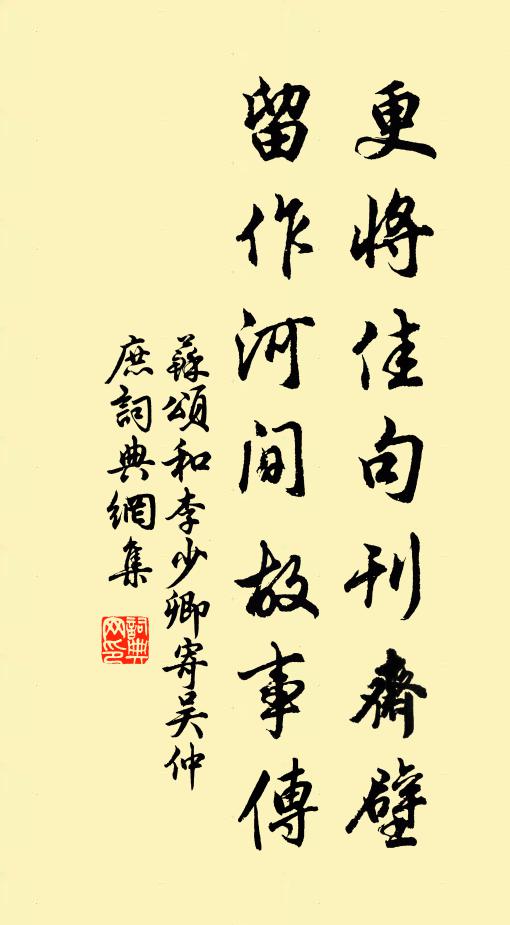 更將佳句刊齋壁
留作河間故事傳
蘇頌和李少卿寄吴仲
庶詞典網集
詞典
网印